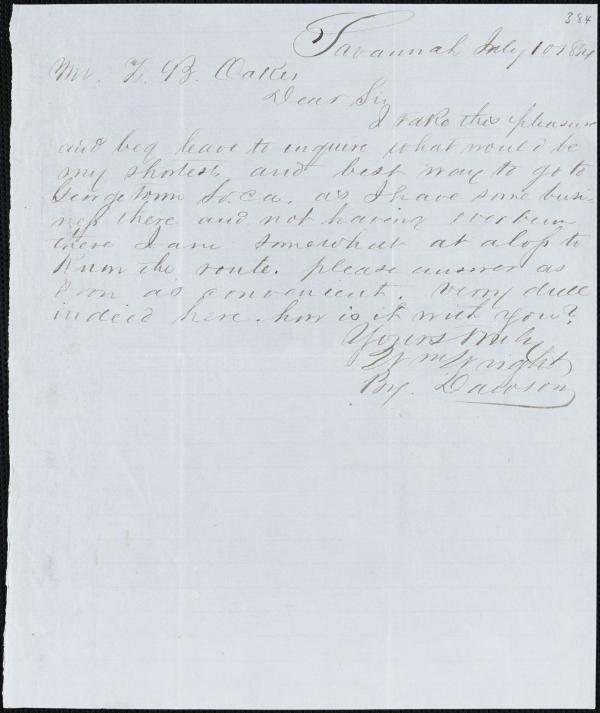 384
Savannah July 10 1854
Mr. Z. B. Oakes
Dear Sir
I take the pleasure
and beg leave to inquire what would be
my shortest and best way to go to
Georgetown So. Ca. as I have some busi-
ness there and not having ever been
there I am somewhat at a loss to
Know the route. please answer as
soon as convenient. verry dull
indeed here. how is it with you?
Yours truly
Wm Wright
By. Dawson